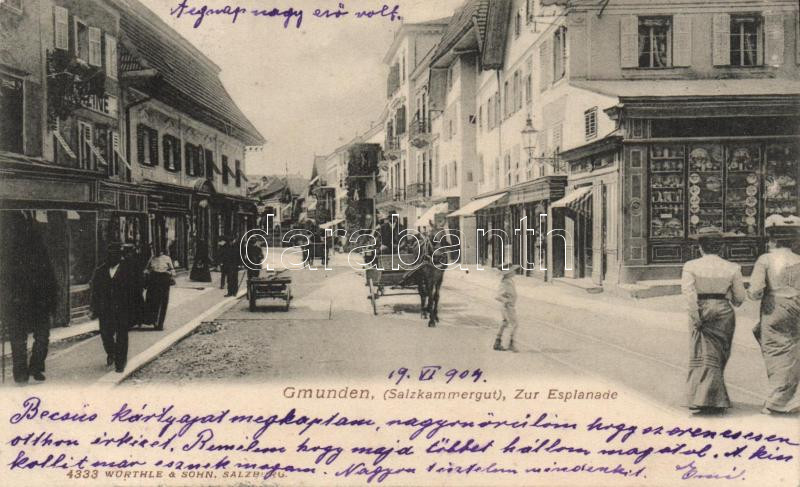 Tegnap nagy eső volt.
darabanth
19. VI 904.
Gmunden, (Salzkammergut), Zur Esplanade
Becsüs kártyáját megkaptam, nagyon örülök hogy szerencsésen
otthon érkizet. Remélem hogy majd többet hallom magától. A kis
kollit már esznek magam. Nagyon tisztelem mindenkit. Ernő.
4333 WÜRTHLE & SOHN, SALZBURG.